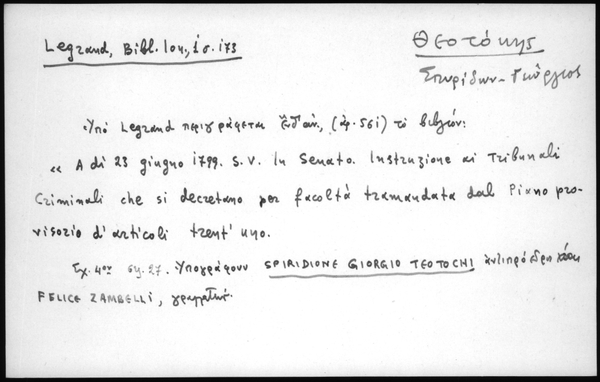 Legrand, Bibl. Ion., 1 σ. 173
Θεοτόκης
Σπυρίδων-Γεώργιος
Υπό Legrand περιγράφεται ἔνθ' ἀν., (ἀρ. 551) τὸ βιβλίον:
« A di 23 giugno 1799. S. V. In Senato. Instruzione ai Tribunali
Criminali che si decretano per facoltà tramandata dal Piano pro-
visorio d'articoli trent'uno.
Σχ. 4ον σελ. 27. Υπογράφουν SPIRIDIONE GIORGIO TEOTOCHI ἀντιπρόεδρος
FELICE ZAMBELLI, γραμματεύς.